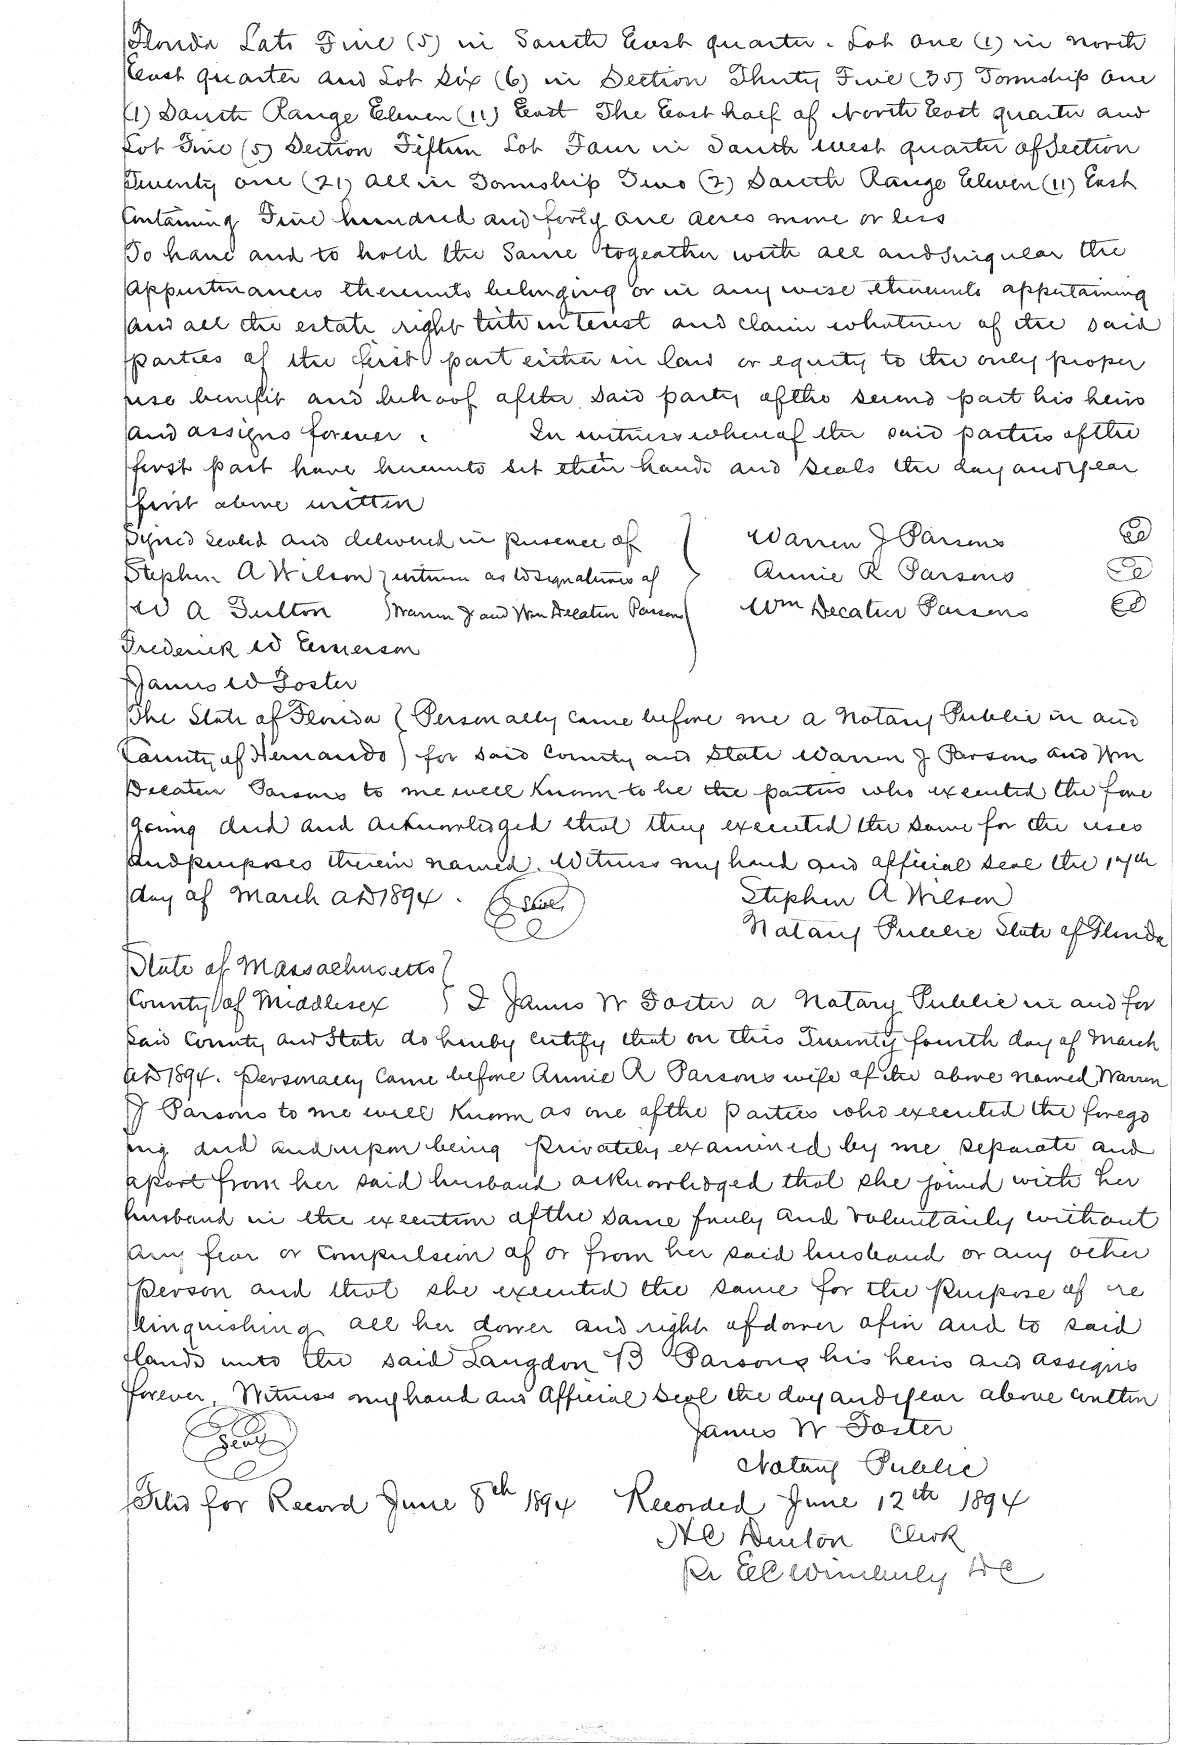 Florida Lots Five (5) in South East quarter. Lot one (1) in North
East quarter and Lot Six (6) in Section Thirty Five (35) Township One
(1) South Range Eleven (11) East The East half of North East quarter and
Lot Five (5) Section Fifteen Lot Four in South west quarter of Section
Twenty one (21) all in Township Two (2) South Range Eleven (11) East
Containing Five hundred and forty one acres more or less
To have and to hold the Same togeather with all and singular the
Appurtinances thereunto belonging or in any wise thereunto appertaining
and all the estate right title interest and claim whatever of the said
parties of the first part either in law or equity to the only proper
use benefit and behoof of the said party of the second part his heirs
and assigns forever. In witness whereof the said parties of the
first part have hereunto set their hands and seals the day and year
first above written
Signed sealed and delivered in presence of } Warren J Parsons
Stephen A Wilson } witness as to signatures of Annie R Parsons
W A Fulton } Warren J and Wm Decatur Parsons Wm Decatur Parsons
Frederick W Emerson
James W Foster
The State of Florida { Personally came before me a Notary Public in and
County of Hernando } for said County and State Warren J Parsons and Wm
Decatur Parsons to me well Known to be the parties who executed the fore
going deed and acknowledged that they executed the same for the uses
and purposes therein named. Witness my hand and official seal the 17th
day of March AD 1894. Seal Stephen A Wilson
Notary Public State of Florida
State of Massachusetts }
County of Middlesex } I James W Foster a Notary Public in and for
said County and State do hereby certify that on this Twenty fourth day of March
AD 1894. Personally Came before Annie R Parsons wife of the above named Warren
J Parsons to me well Known as one of the parties who executed the forego
ing deed and upon being privately examined by me separate and
apart from her said husband acknowledged that she joined with her
husband in the execution of the same freely and voluntarily without
any fear or Compulsion of or from her said husband or any other
person and that she executed the same for the Purpose of re
linquishing all her dower and right of dower of in and to said
lands unto the said Langdon B Parsons his heirs and assigns
forever. Witness my hand and Official seal the day and year above written
Seal James W Foster
Notary Public
Filed for Record June 8th 1894 Recorded June 12th 1894
Clerk
Pr E C Wimberly DC